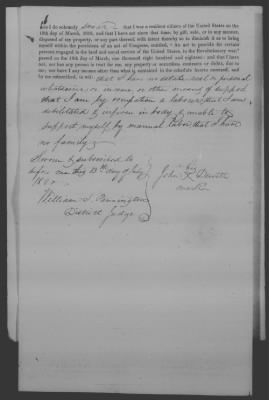 and I do solemnly swear that I was a resident citizen of the United States on the
18th day of March, 1818, and that I have not since that time, by gift, sale, or in any manner,
disposed of my property, or any part thereof, with intent thereby so to diminish it as to bring
myself within the provisions of an act of Congress, entitled, "An act to provide for certain
persons engaged in the land and naval service of the United States, in the Revolutionary war,"
passed on the 18th day of March, one thousand eight hundred and eighteen; and that I have
not, nor has any person in trust for me, any property or securities, contracts or debts, due to
me; nor have I any income other than what is contained in the schedule hereto annexed, and
by me subscribed, to wit: that I have no estate real or personal
whatsoever, or income, or other means of support
that I am by occupation a laborer that I am
debilitated & infirm in body & unable to
support myself by manual labor, that I have
no family
Sworn & subscribed to
before me this 13th day of July
William S. Pennington
District Judge
his
John X
mark